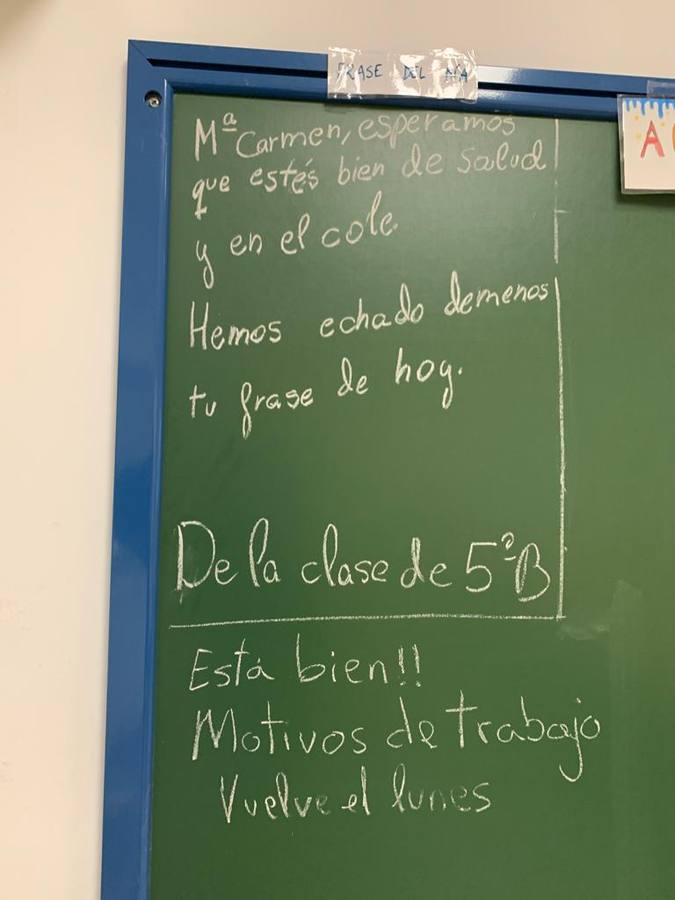 FRASE DEL DÍA
A
Mª Carmen, esperamos
que estés bien de salud
y en el cole.
Hemos echado demenos
tu frase de hoy.
De la clase de 5ºB
Está bien!!
Motivos de trabajo
Vuelve el lunes